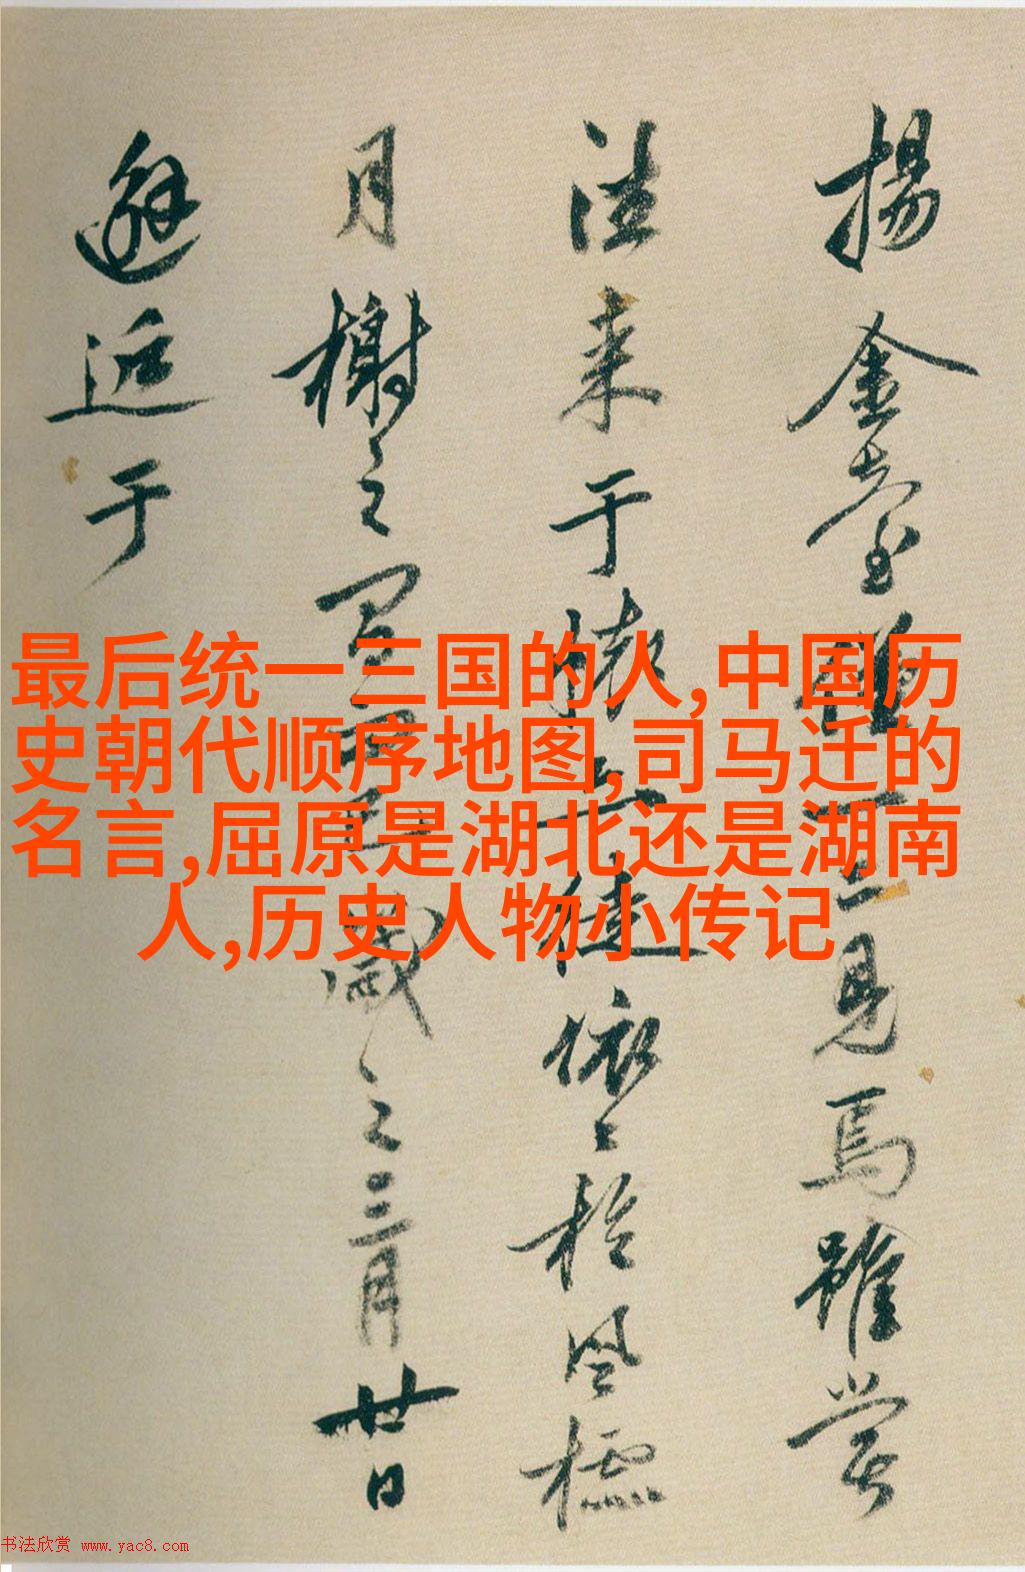 最后统一三国的人,中国历
史朝代顺序地图,司马迁的
名言,屈原是湖北还是湖南
人,历史人物小传记
揚金臺 見焉雖嘗
往来于 依〻於風檽
月榭之 歲之三月廿日
邂逅于
书法欣赏 www.yac8.com